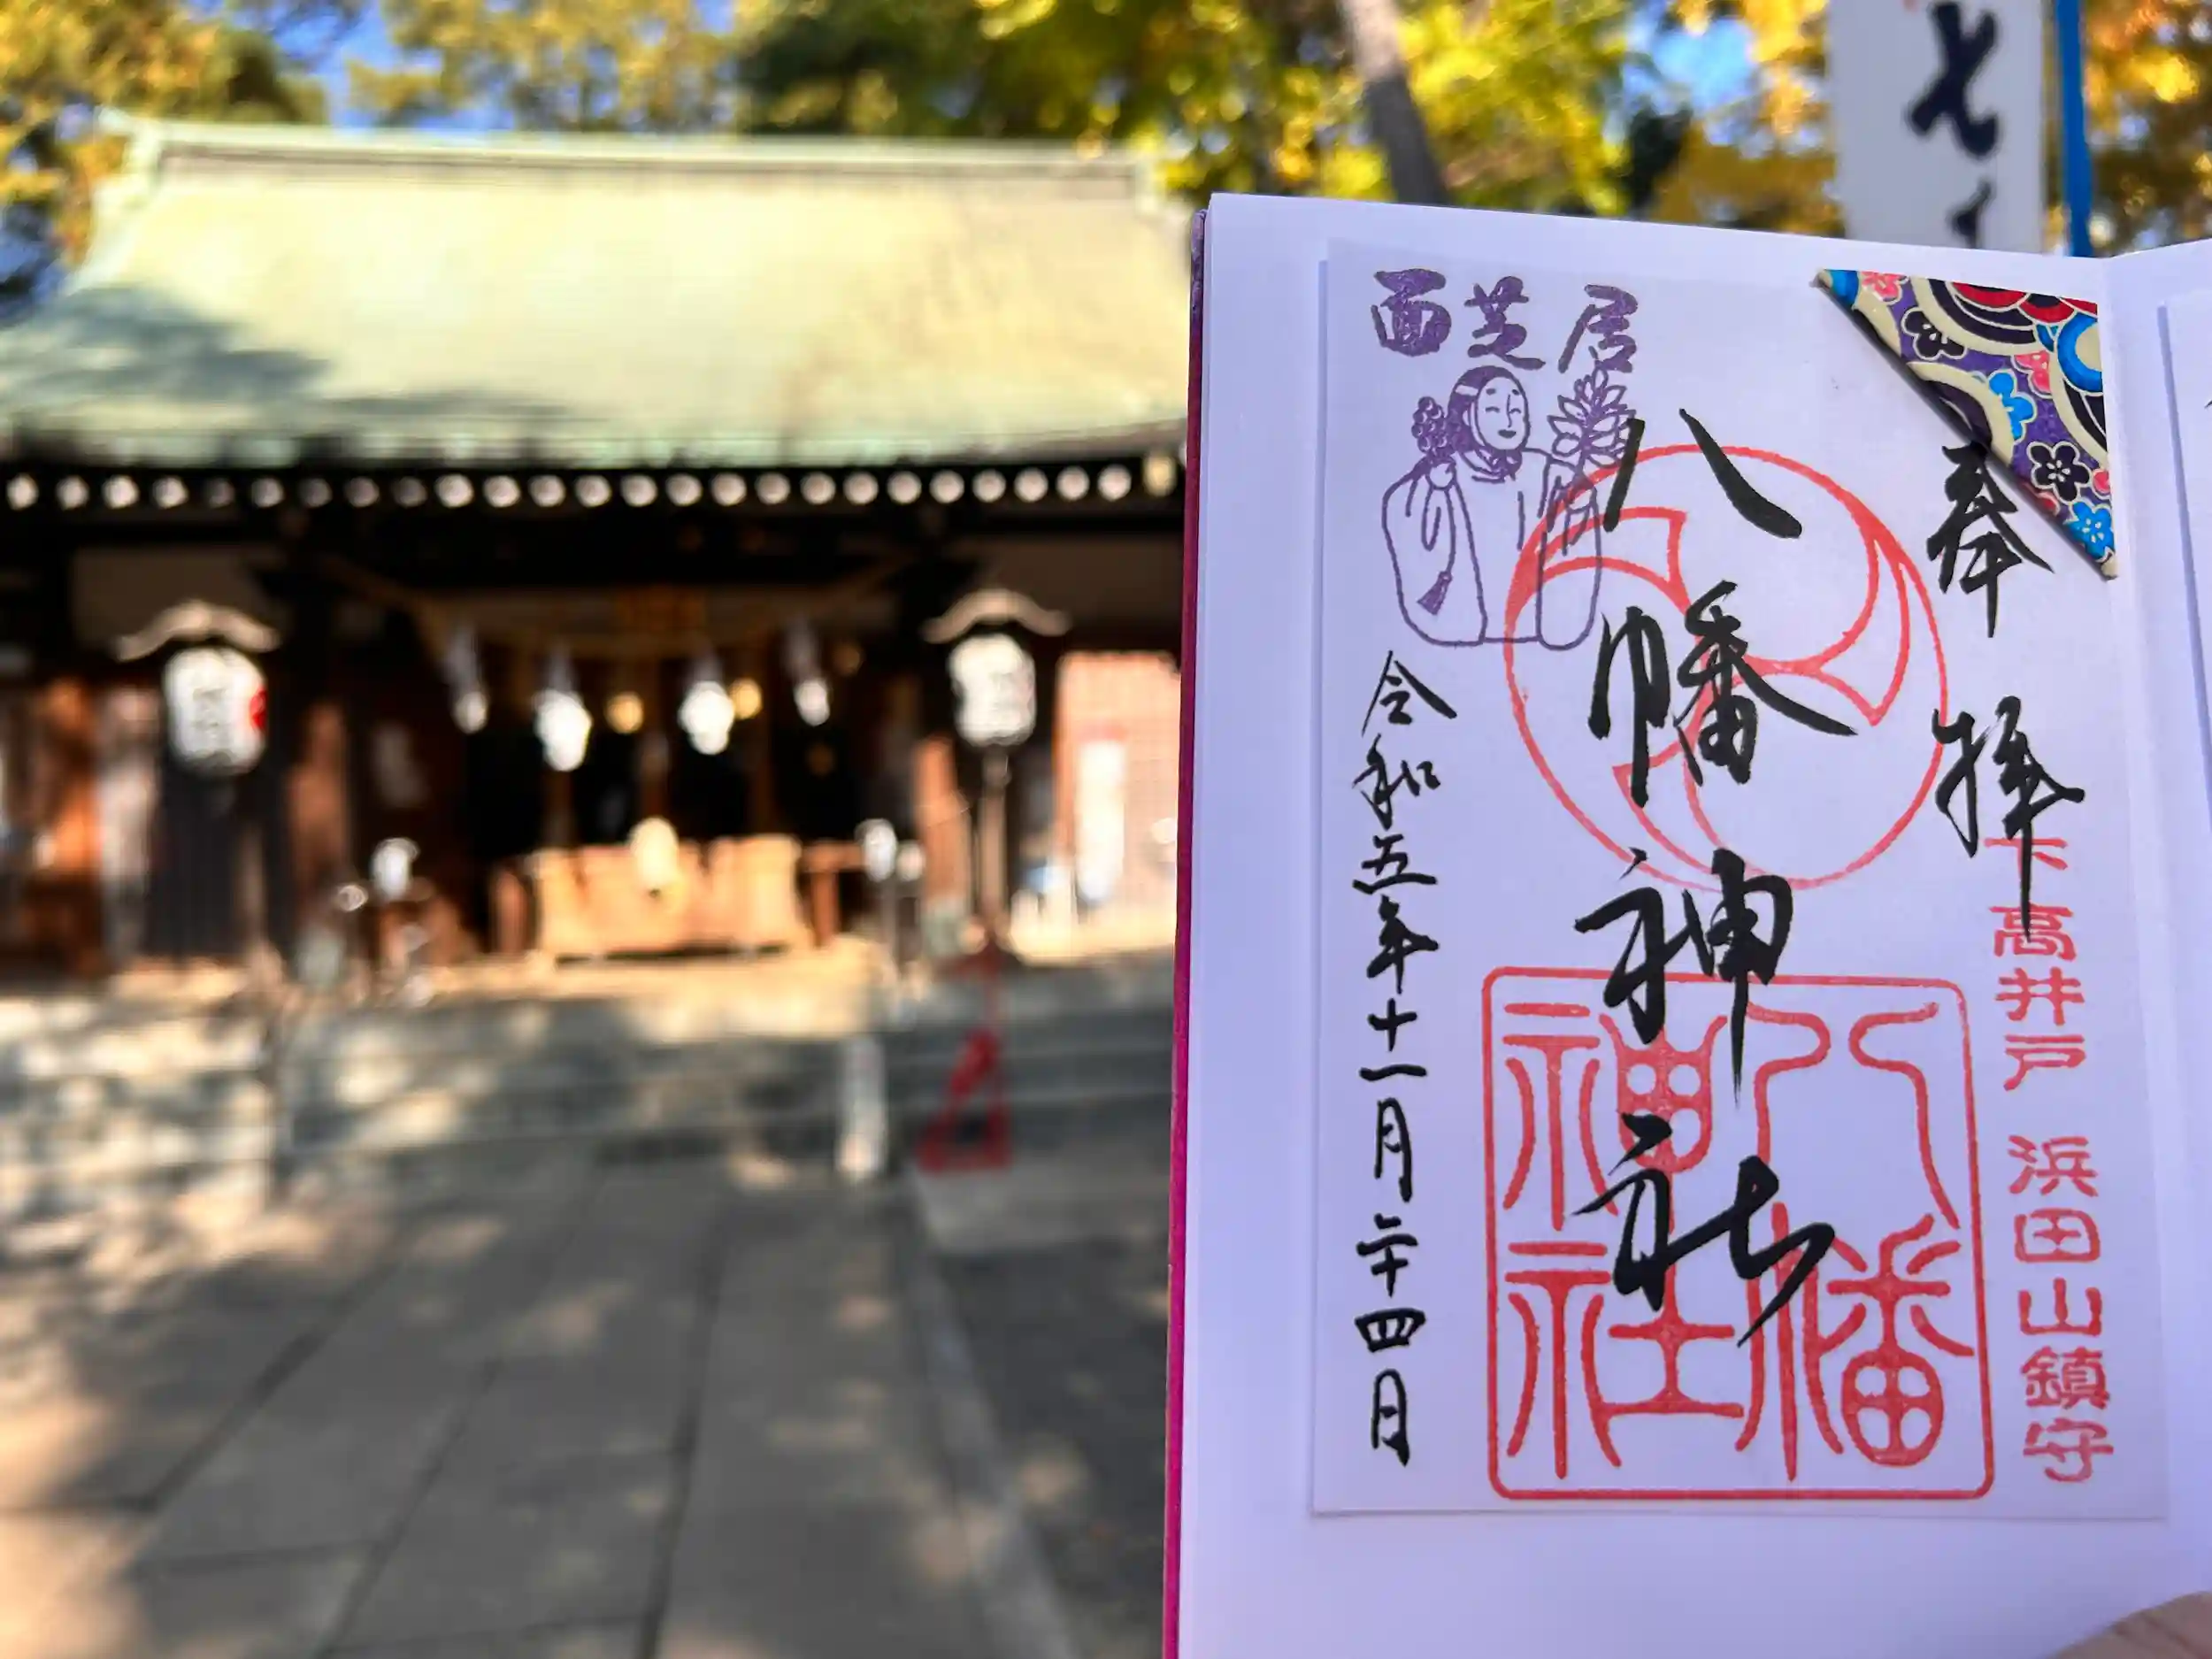 奉拝
下高井戸 浜田山鎮守
八幡神社
八幡神社
面芝居
令和五年十一月二十四月